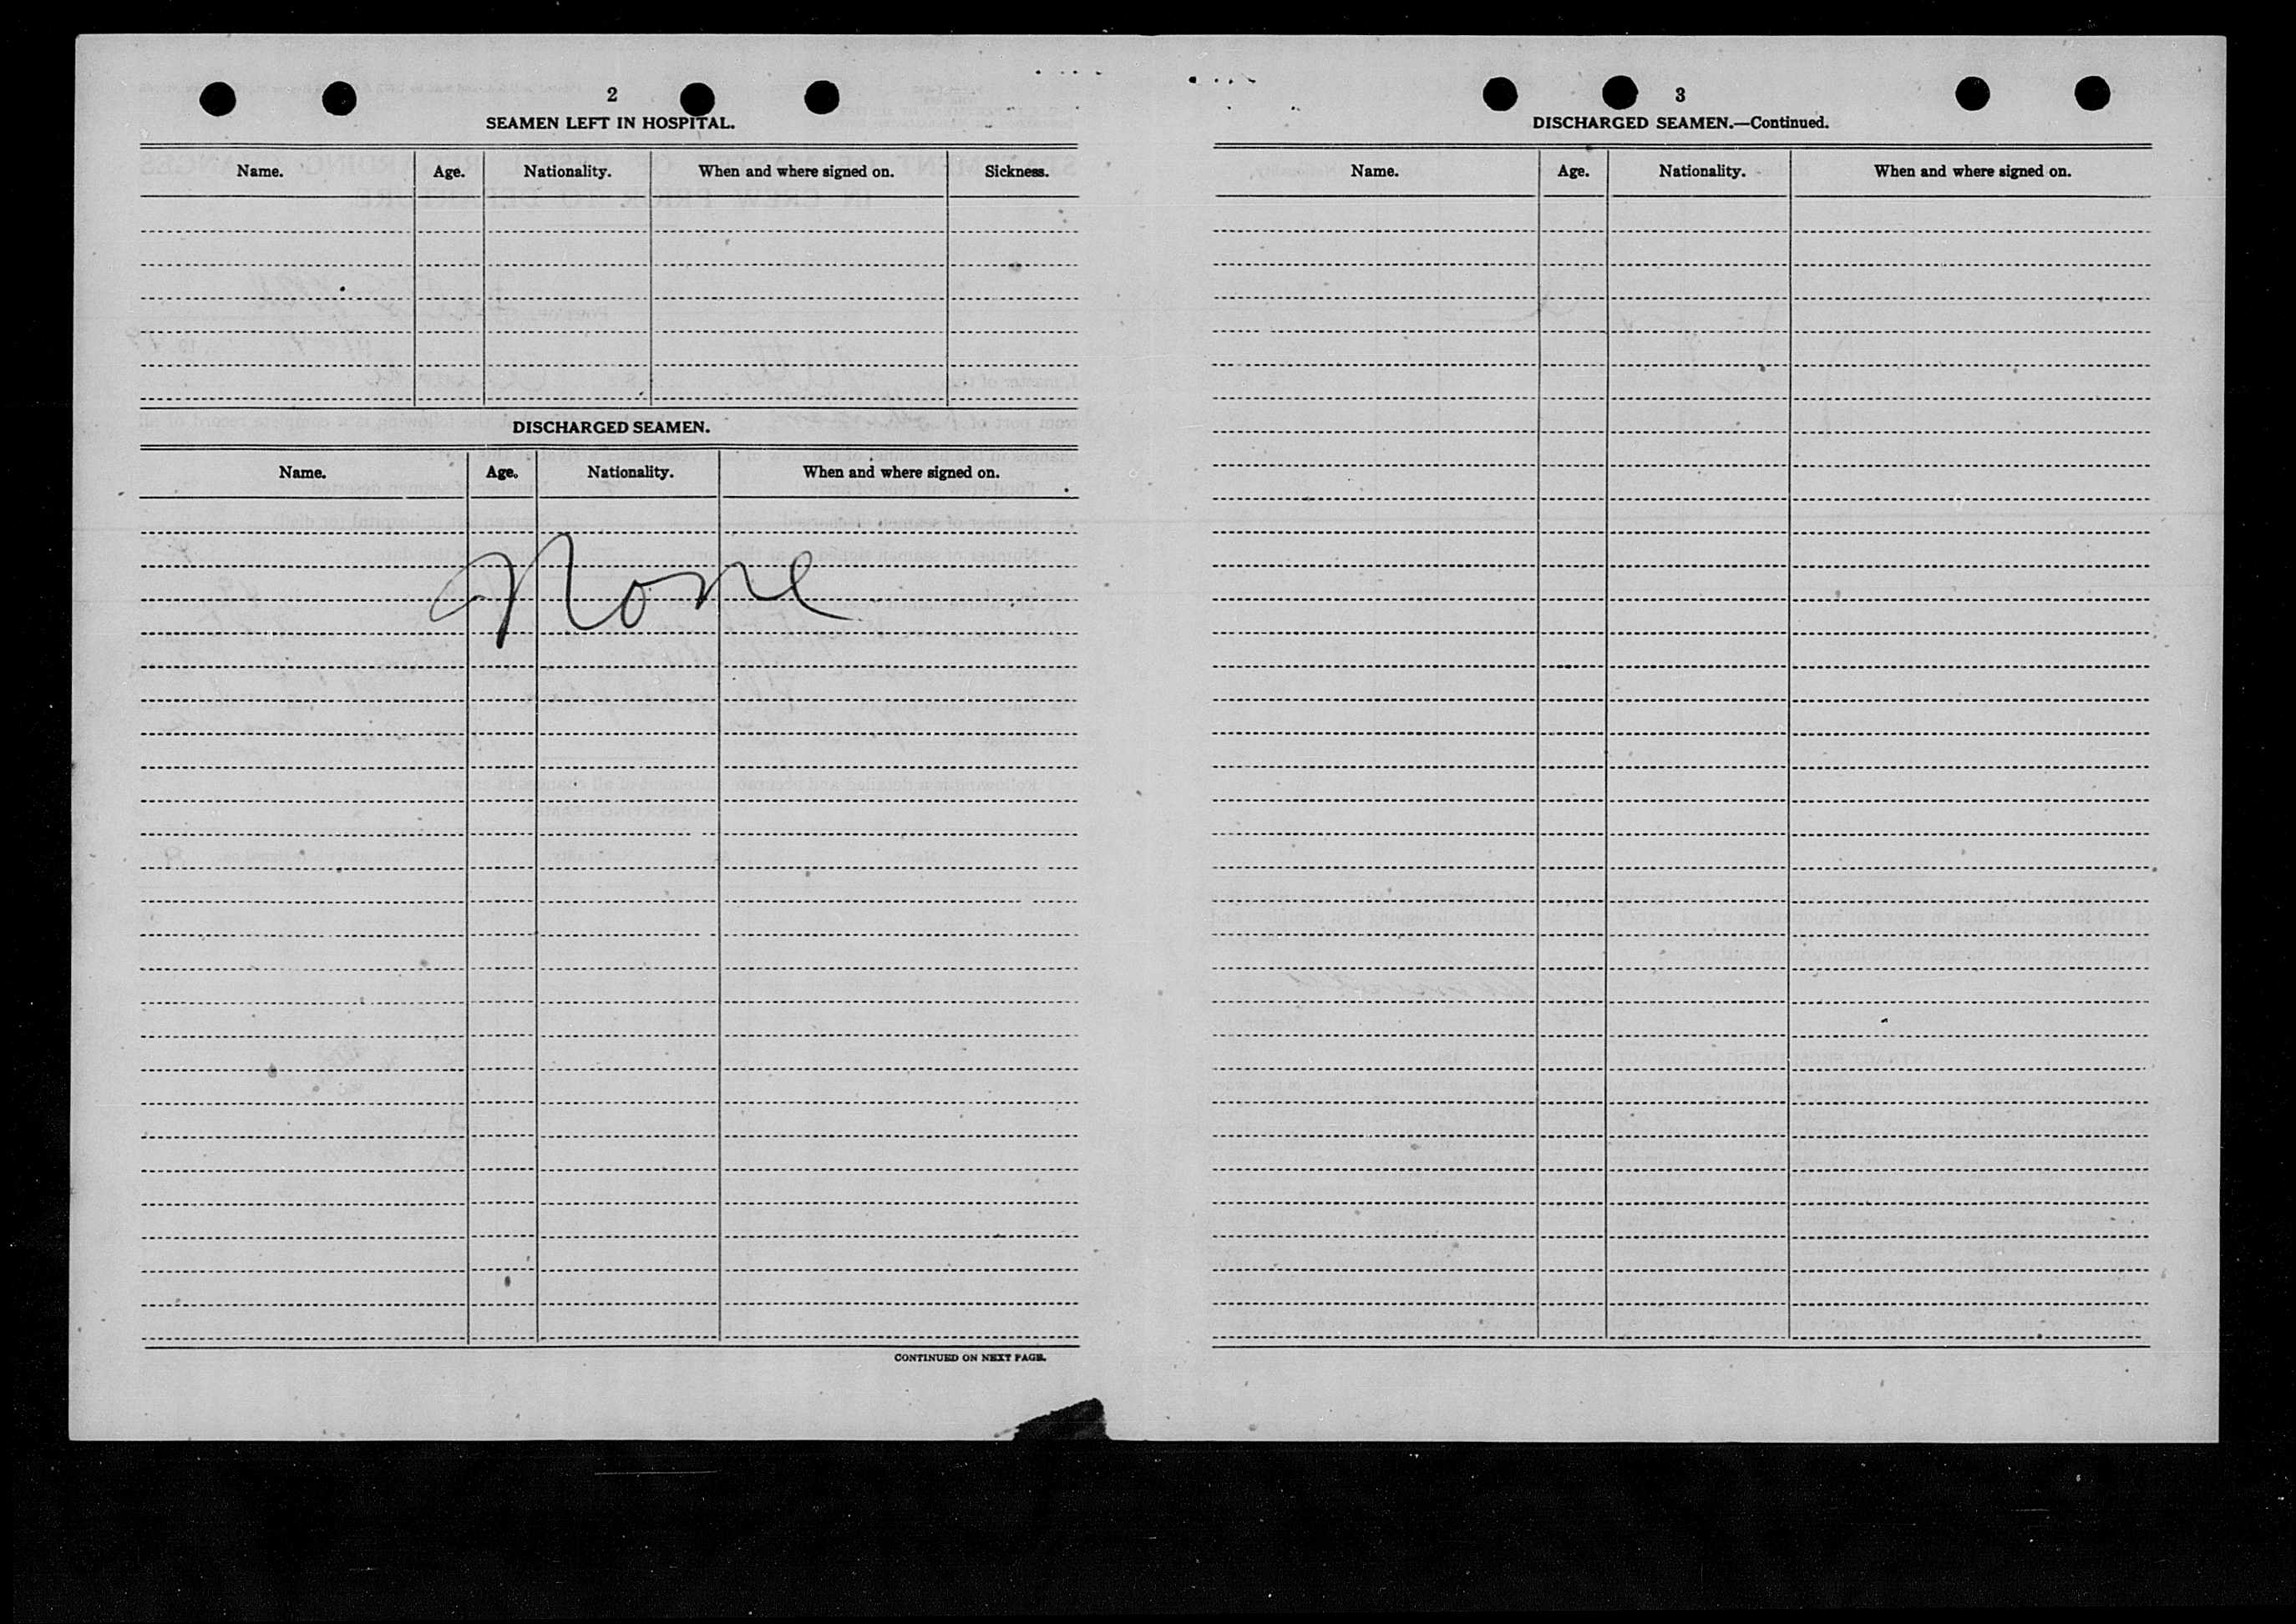 2
SEAMEN LEFT IN HOSPITAL.
Name. Age. Nationality. When and where signed on. Sickness.
DISCHARGED SEAMEN.
Name. Age. Nationality. When and where signed on.
None
CONTINUED ON NEXT PAGE.
3
DISCHARGED SEAMEN.—Continued.
Name. Age. Nationality. When and where signed on.